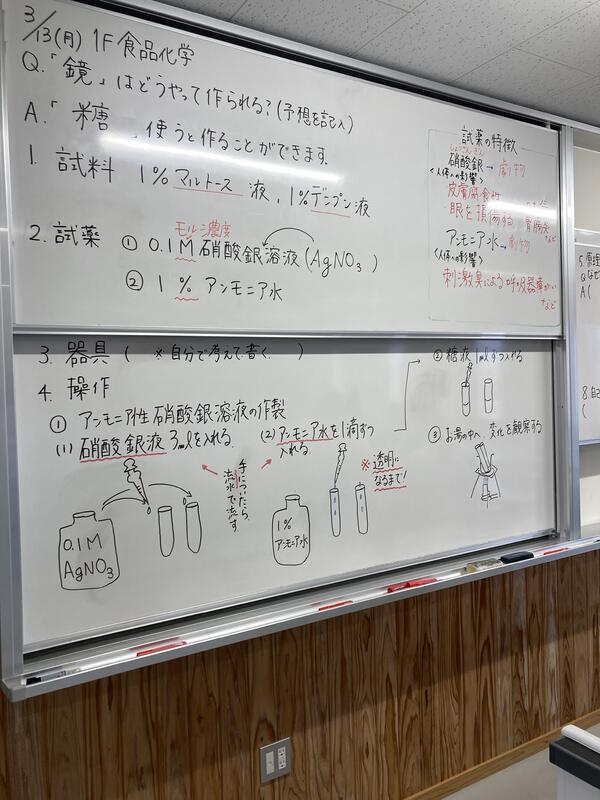 3/13(月) 1F 食品化学
Q.「鏡」はどうやって作られる?(予想を記入)
A.「 糖 」使うと作ることができます.
1. 試料 1% マルトース 液, 1% デンプン液
モル濃度
2. 試薬 ① 0.1M 硝酸銀溶液(AgNO₃ )
② 1 % アンモニア水
試薬の特徴
しょうさんぎん
硝酸銀→劇物
<人体への影響>
皮膚腐食性
眼を損傷する 胃腸炎
など
アンモニア水→劇物
<人体への影響>
刺激臭による呼吸器障がい
など
3. 器具 ( ※自分で考えて書く. )
4. 操作
① アンモニア性硝酸銀溶液の作製
(1) 硝酸銀液 3mlを入れる.
(2) アンモニア水を1滴ずつ
入れる.
手についたら
流水で流す
※ 透明に
なるまで!
0.1M
AgNO₃
1%
アンモニア水
② 糖液 1mlずつ入れる
③ お湯の中へ. 変化を観察する
5. 原理
Q なぜ
A (
8. 自己
(